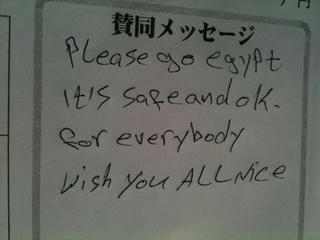 賛同メッセージ
Please go egypt
it's safe and ok.
for everybody
wish you ALL Nice